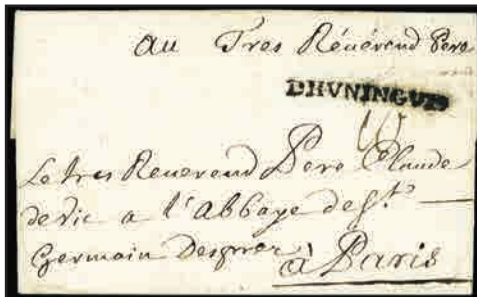 au Tres Révérend Pere
DHVNINGUE
10
Le tres Reverend Pere Claude
de Vic a l'abbaye de St.
Germain Desprez
à Paris